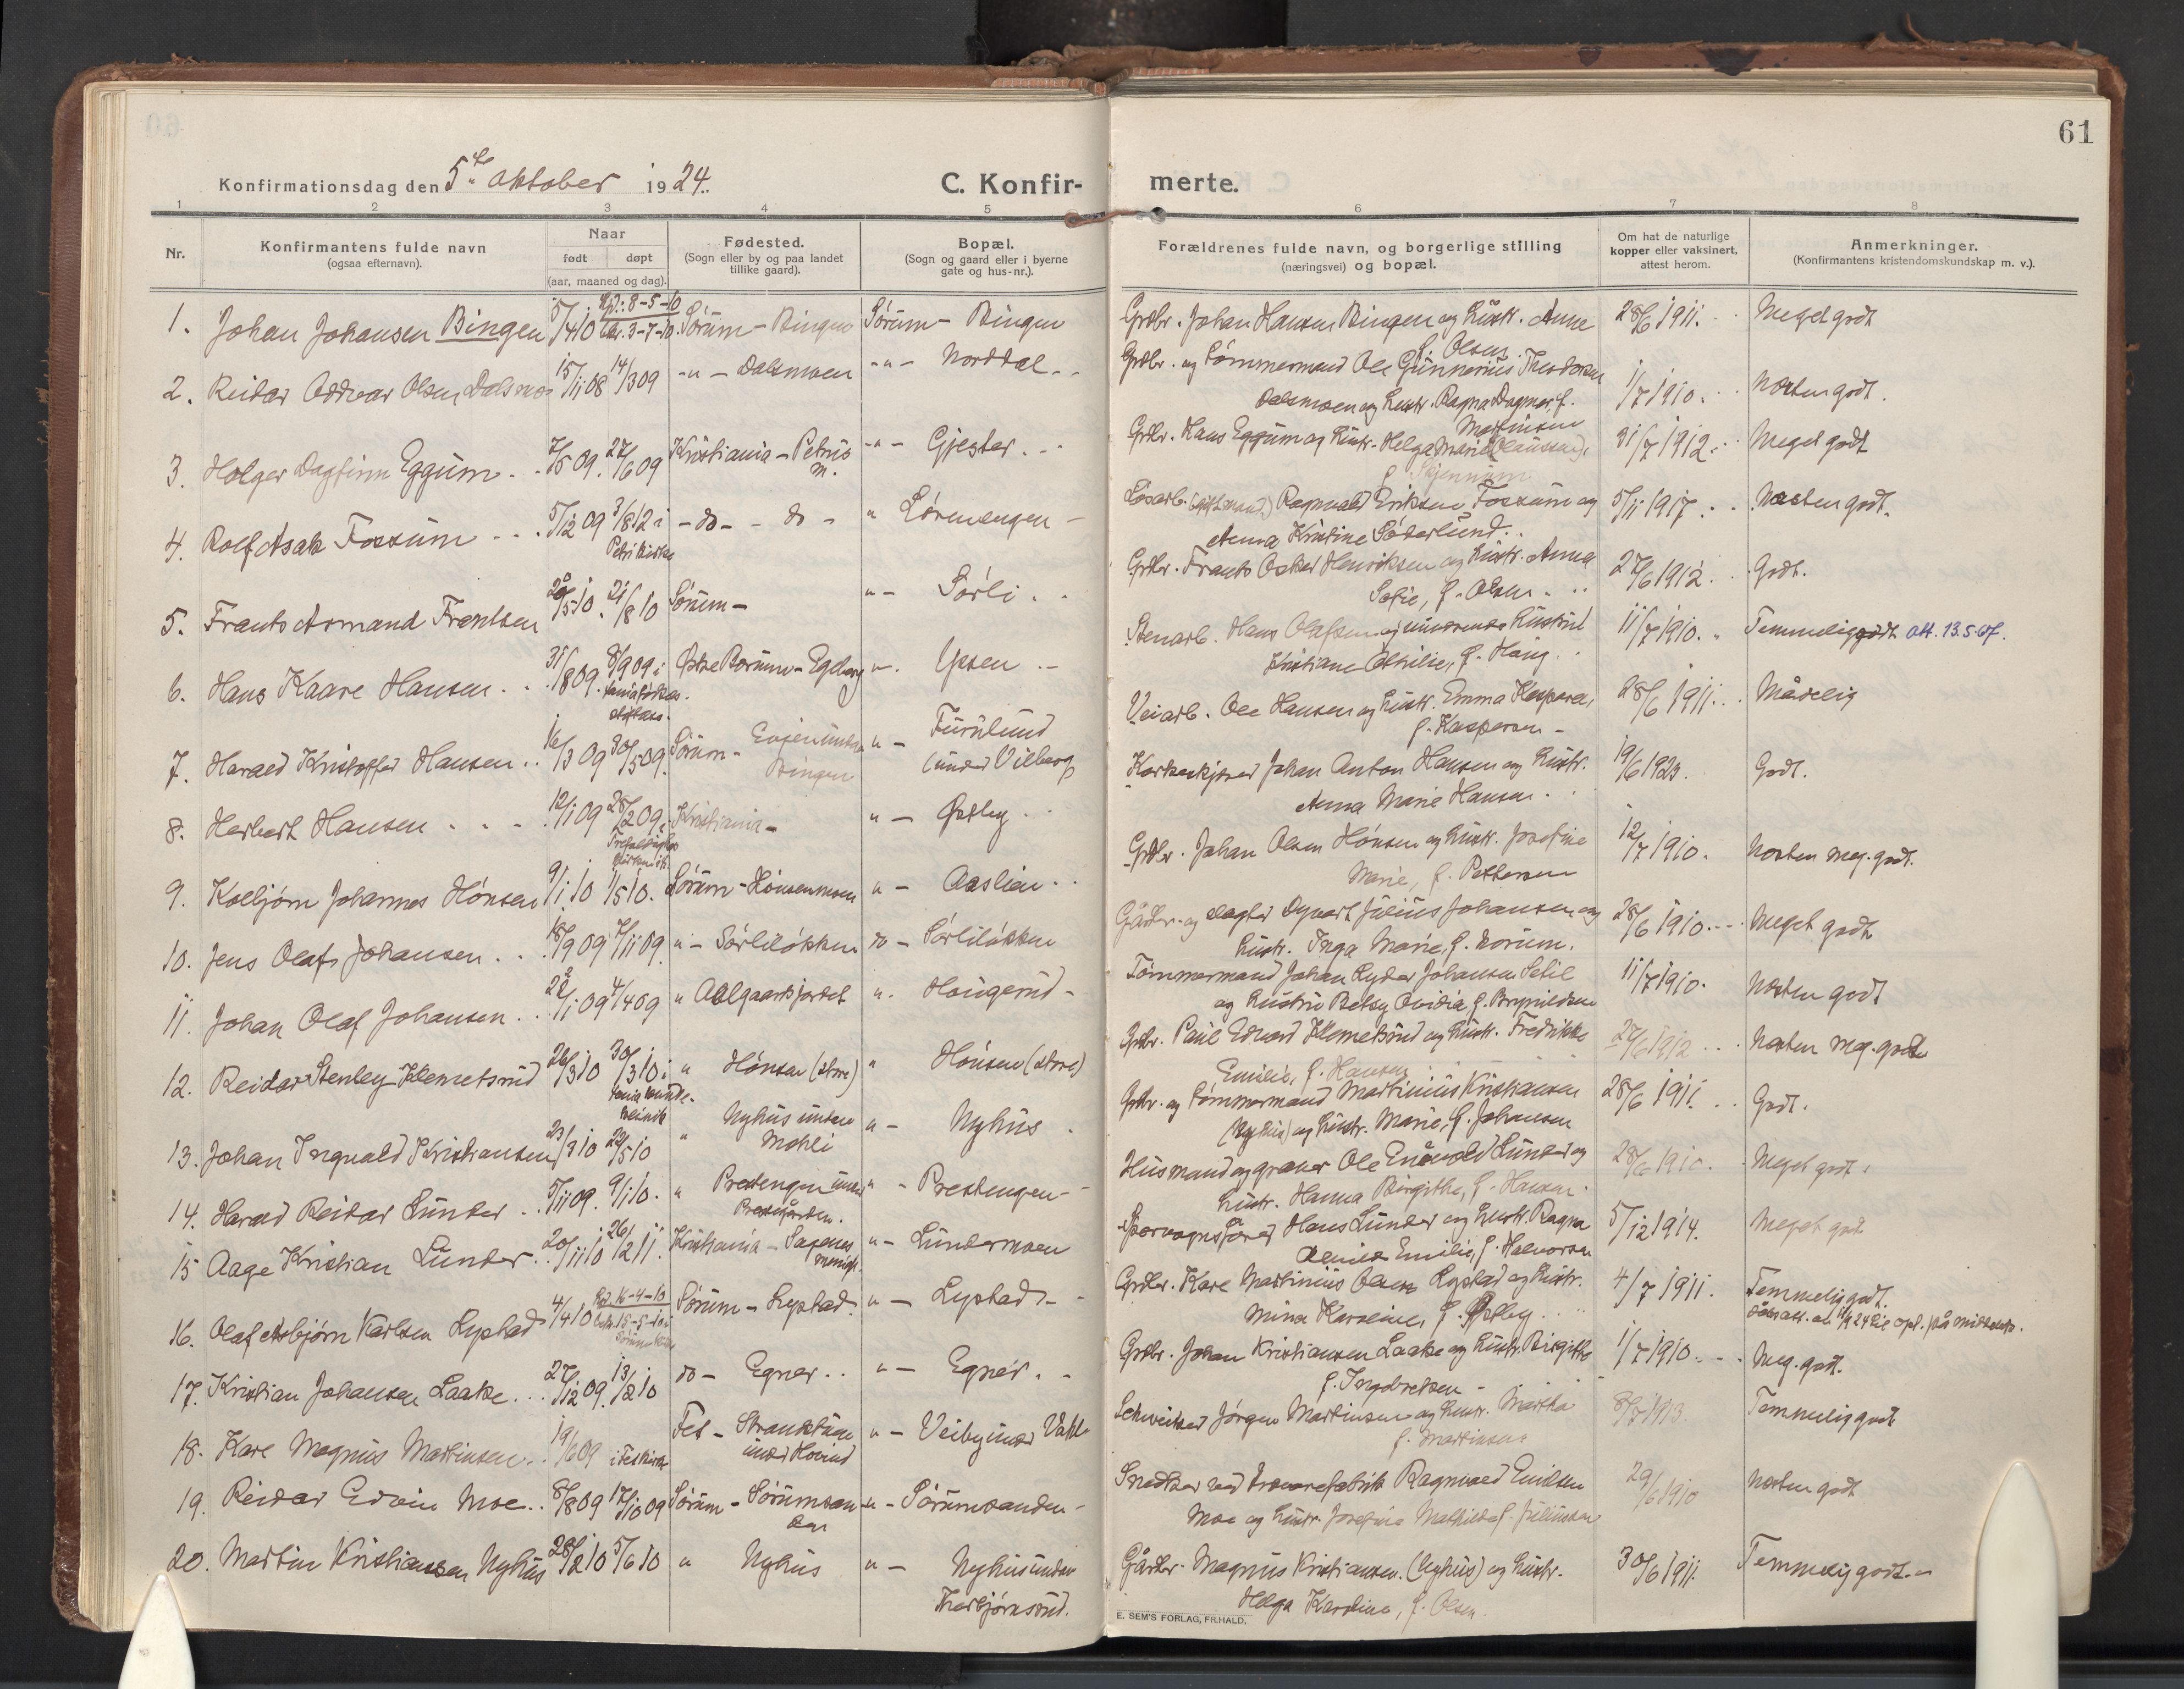 61
Konfirmationsdag den 5te oktober 1924.
C. Konfirmerte.
1 2 3 4 5 6 7 8
Nr.
Konfirmantens fulde navn
(ogsaa efternavn).
Naar
født døpt
(aar, maaned og dag).
Fødested.
(Sogn eller by og paa landet
tillike gaard).
Bopæl.
(Sogn og gaard eller i byerne
gate og hus-nr.).
Forældrenes fulde navn, og borgerlige stilling
(næringsvei) og bopæl.
Om hat de naturlige
kopper eller vaksinert,
attest herom.
Anmerkninger.
(Konfirmantens kristendomskundskap m. v.).
1. Johan Johansen Bingen 5/4 10 Hjd.: 8-5-10 3-7-10. Sørum - Bingen Sørum - Bingen
Grdbr. Johan Hansen Bingen og hustr. Anne
f. Olsen. 28/6 1911. Meget godt
2. Reidar Oddvar Olsen Dalsmo 15/11 08 14/3 09 -"- Dalsmoen -"- Norddal
Grdbr. og tømmermand Ole Gunnerius Theodorsen
Dalsmoen og hustr. Ragna Dagmar, f.
Martinsen 1/7 1910. Næsten godt.
3. Holger Dagfinn Eggum 7/5 09. 27/6 09 Kristiania - Petrus m. -"- Gjester
Grdbr. Hans Eggum og hustr. Helga Marie
31/7 1912. Meget godt
4. Rolf Asak Fossum 5/12 09 3/8 12 i Petri kirke -do- -do- " Lörmengen
Løsarb. Ragnvald Eriksen Fossum og
Anna Kristine Söderlund. 5/11 1917. Næsten godt.
5. Frants Armand Frantsen 20/5 10. 21/8 10 Sörum - "- Sörli
Grdbr. Frants Oskar Henriksen og hustr. Anna
Sofie, f. Olsen. 27/6 1912. Godt.
6. Hans Kaare Hansen 31/8 09. 8/9 09 i Østre Bærum - "-. Ypsen
Stenarb. Hans Olafsen og hustru
Kristiane Othilie, f. Haug. 11/7 1910. Temmelig godt att. 13.5.67.
7. Harald Kristoffer Hansen 16/3 09 30/5 09. Sørum - under
Bingen "- Furulund
(under Vilberg
Veiarb. Ole Hansen og hustr. Emma Kaspara,
f. Kaspersen 28/6 1911. Mådelig
8. Herbert Hansen 12/1 09 28/2 09 i Kristiania - "- Østby
Johan Anton Hansen og hustr.
Anna Marie Hansen. 19/6 1923. Godt.
9. Kolbjørn Johannes Hónsen 9/1 10 1/5 10. Sörum - Hónsenmoen "- Aaslien
Grdbr. Johan Olsen Hónsen og hustr. Josefine
Marie, f. Pettersen 12/7 1910. Næsten meg. godt.
10. Jens Olaf Johansen 18/9 09 7/11 09. "- Sörliløkken do - Sörliløkken
Gårdbr. og slagter Dyvart Julius Johansen og
hustr. Inga Marie, f. Norum. 28/6 1910. Meget godt
11. Johan Olaf Johansen 22/1 09 4/4 09 " Aalgaardsjordet ". Haugerud -
Tömmermand Johan Ryder Johansen Setil
og hustru Betsy Ovidia, f. Brynildsen 11/7 1910. Næsten godt
12. Reidar Stenley Klemetsrud 26/3 10 30/3 10 i " Hónsen (store) " Hónsen (store)
Grdbr. Paul Edvard Klemetsrud og hustr. Fredrikke
Emilie, f. Hansen 27/6 1912. Næsten meg. godt
13. Johan Ingvald Kristiansen 23/3 10 22/5 10 " Nyhus under
Mohli "- Nyhus
Grdbr. og tömmermand Martinius Kristiansen
(Nyhus) og hustr. Marie, f. Johansen 28/6 1911. Godt.
14. Harald Reidar Lunder 5/11 09. 9/1 10. " Prestengen under
Prestgården. " - Prestengen -
Husmand og graver Ole Enevold Lunder og
hustr. Hanna Birgithe, f. Hansen. 28/6 1910. Meget godt.
15 Aage Kristian Lunder 20/11 10 26/2 11. Kristiania - Sagenes
menigh. "- Lundermoen
Sporvognsfører Hans Lunder og hustr. Ragna
Emilie, f. Halvorsen 5/12 1914. Meget godt
16. Olaf Asbjørn Karlsen Lystad 4/4 10 16-4-10 15-5-10 Sørum - Lystad. "- Lystad -
Grdbr. Kare Martinius Olsen Lystad og hustr.
Mina Karoline, f. Østby. 4/7 1911. Temmelig godt.
17. Kristian Johansen Laake 27/12 09. 13/2 10 do - Egner "- Egner
Grdbr. Johan Kristiansen Laake og hustr. Birgitte
f. Ingebretsen 1/7 1910. Meg. godt.
18. Kare Magnus Martinsen 19/6 09 i Fet kirke Fet -
under Hovind "- Veiby under Vahl
Schveitser Jörgen Martinsen og hustr. Martha
f. Martinsen 8/7 1913. Temmelig godt
19. Reidar Edvin Moe 8/8 09 17/10 09 Sørum - Sörumsanden "- Sörumsanden -
Snedker ved trævarefabrik Ragnvald Emilsen
Moe og hustr. Josefine Mathilde f. Juliussen 29/6 1910 Næsten godt
20. Martin Kristiansen Nyhus 28/2 10 5/6 10 " Nyhus "- Nyhus under
Torbjørnsrud.
Gårdbr. Magnus Kristiansen (Nyhus) og hustr.
Helga Karoline, f. Olsen. 30/6 1911. Temmelig godt.
E. SEM'S FORLAG, FR.HALD.